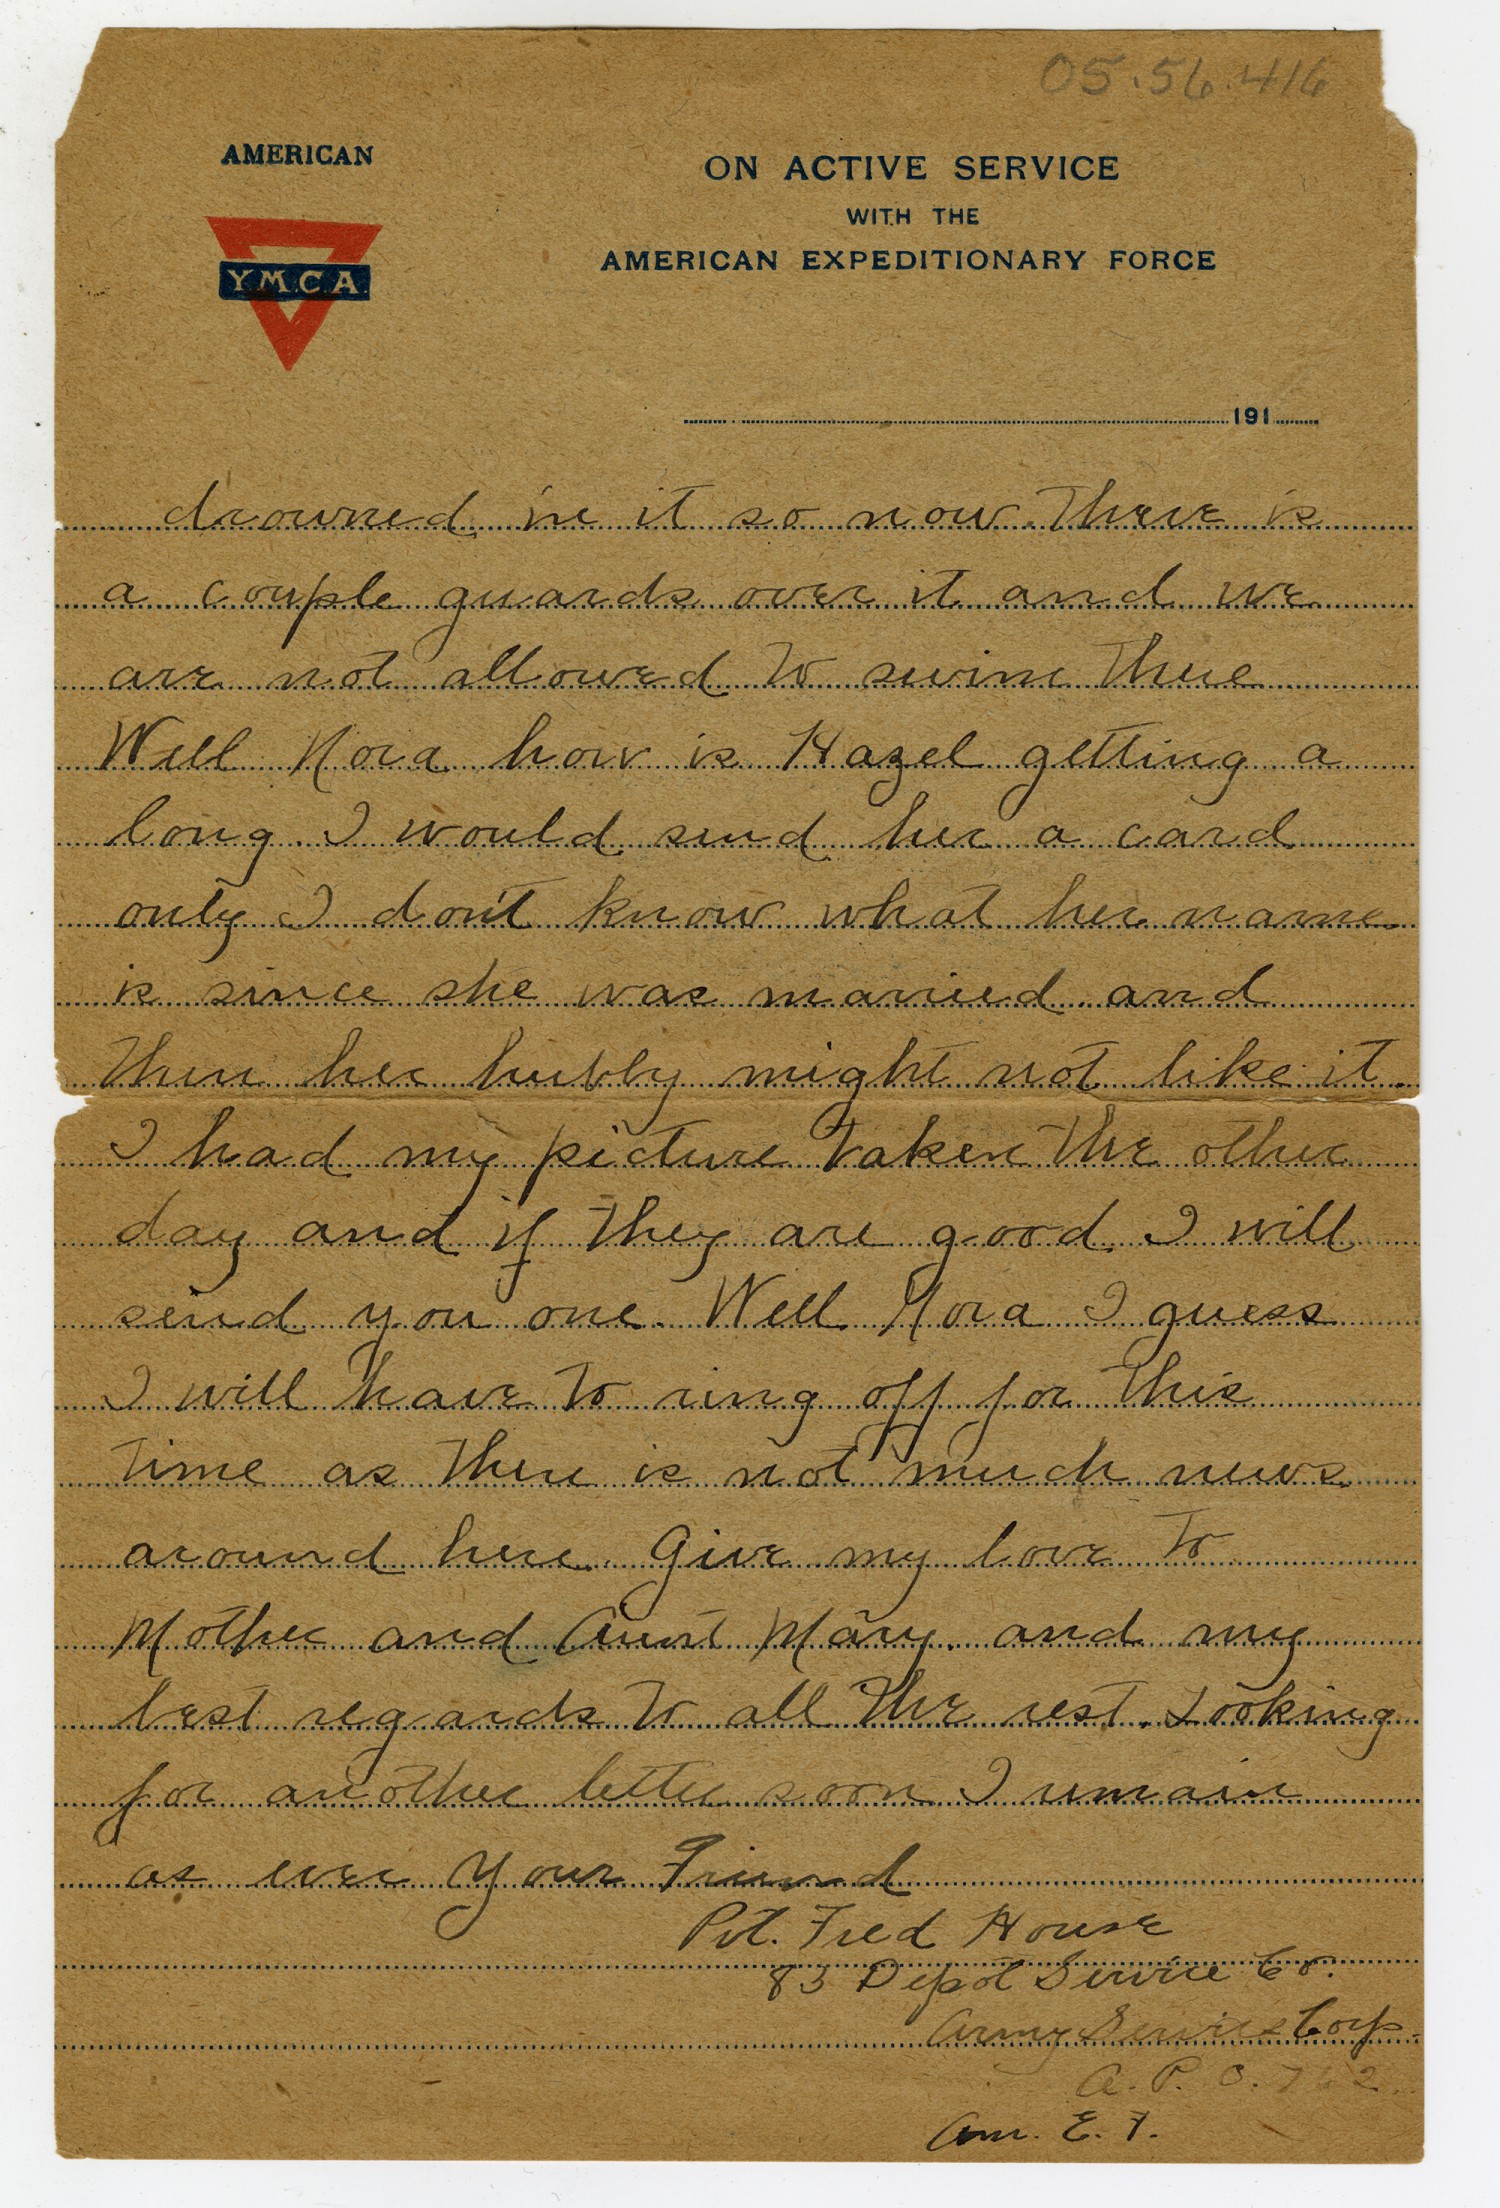 05.56.416
AMERICAN
Y.M.C.A.
ON ACTIVE SERVICE
WITH THE
AMERICAN EXPEDITIONARY FORCE
191
drowned in it so now there is
a couple guards over it and we
are not allowed to swim there
Well Nora how is Hazel getting a
long. I would send her a card
only I don't know what her name
is since she was married and
then her hubby might not like it.
I had my picture taken the other
day and if they are good I will
send you one. Well Nora I guess
I will have to ring off for this
time as there is not much news
around here. Give my love to
Mother and Aunt Mary. and my
best regards to all the rest. Looking
for another letter soon I remain
as ever Your Friend
Pvt. Fred House
83 Depot Service Co.
Army Service Corp.
A. P. O. 762.
Am. E. F.